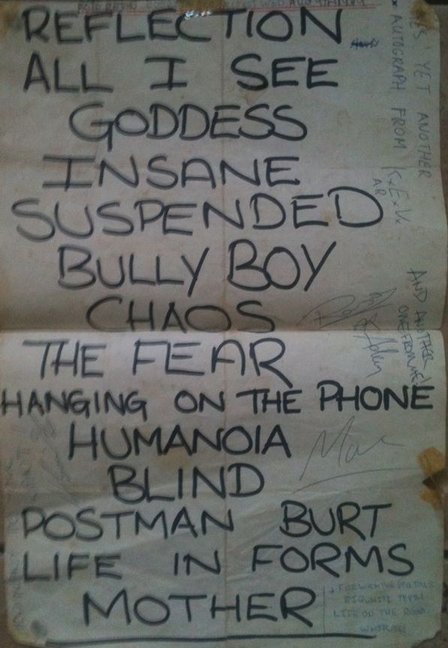 REFLECTION
ALL I SEE
GODDESS
INSANE
SUSPENDED
BULLY BOY
CHAOS
THE FEAR
HANGING ON THE PHONE
HUMANOIA
BLIND
POSTMAN BURT
LIFE IN FORMS
MOTHER
YET ANOTHER
AUTOGRAPH FROM K.E.V.
AND ANOTHER
LIFE ON THE ROAD